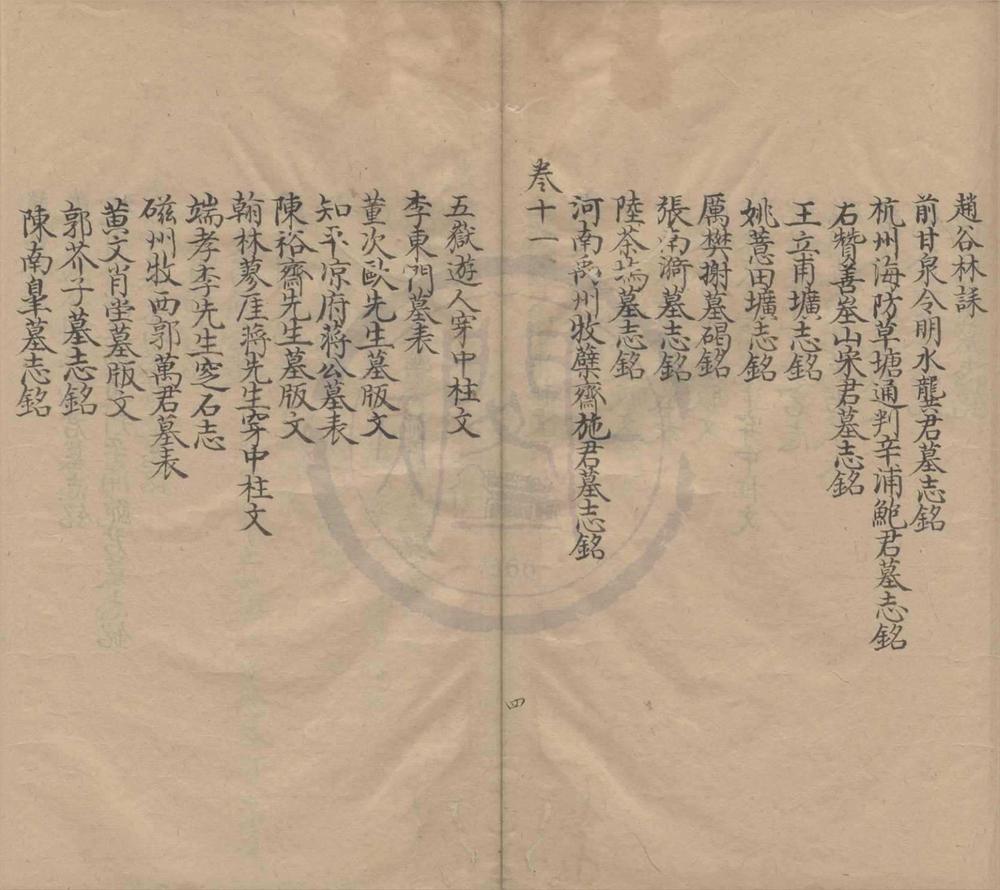 趙谷林誄
前甘泉令明水龔君墓志銘
杭州海防草塘通判辛浦鮑君墓志銘
右贊善峚山宋君墓志銘
王立甫壙志銘
姚薏田壙志銘
厲樊榭墓碣銘
張南漪墓志銘
陸茶塢墓志銘
河南禹州牧檗齋施君墓志銘
卷十一
五嶽遊人穿中柱文
李東門墓表
董次歐先生墓版文
知平凉府蔣公墓表
陳裕齋先生墓版文
翰林蓼厓蔣先生穿中柱文
端孝李先生窆石志
磁州牧西郭萬君墓表
黄文肖堂墓版文
郭芥子墓志銘
陳南皐墓志銘
四